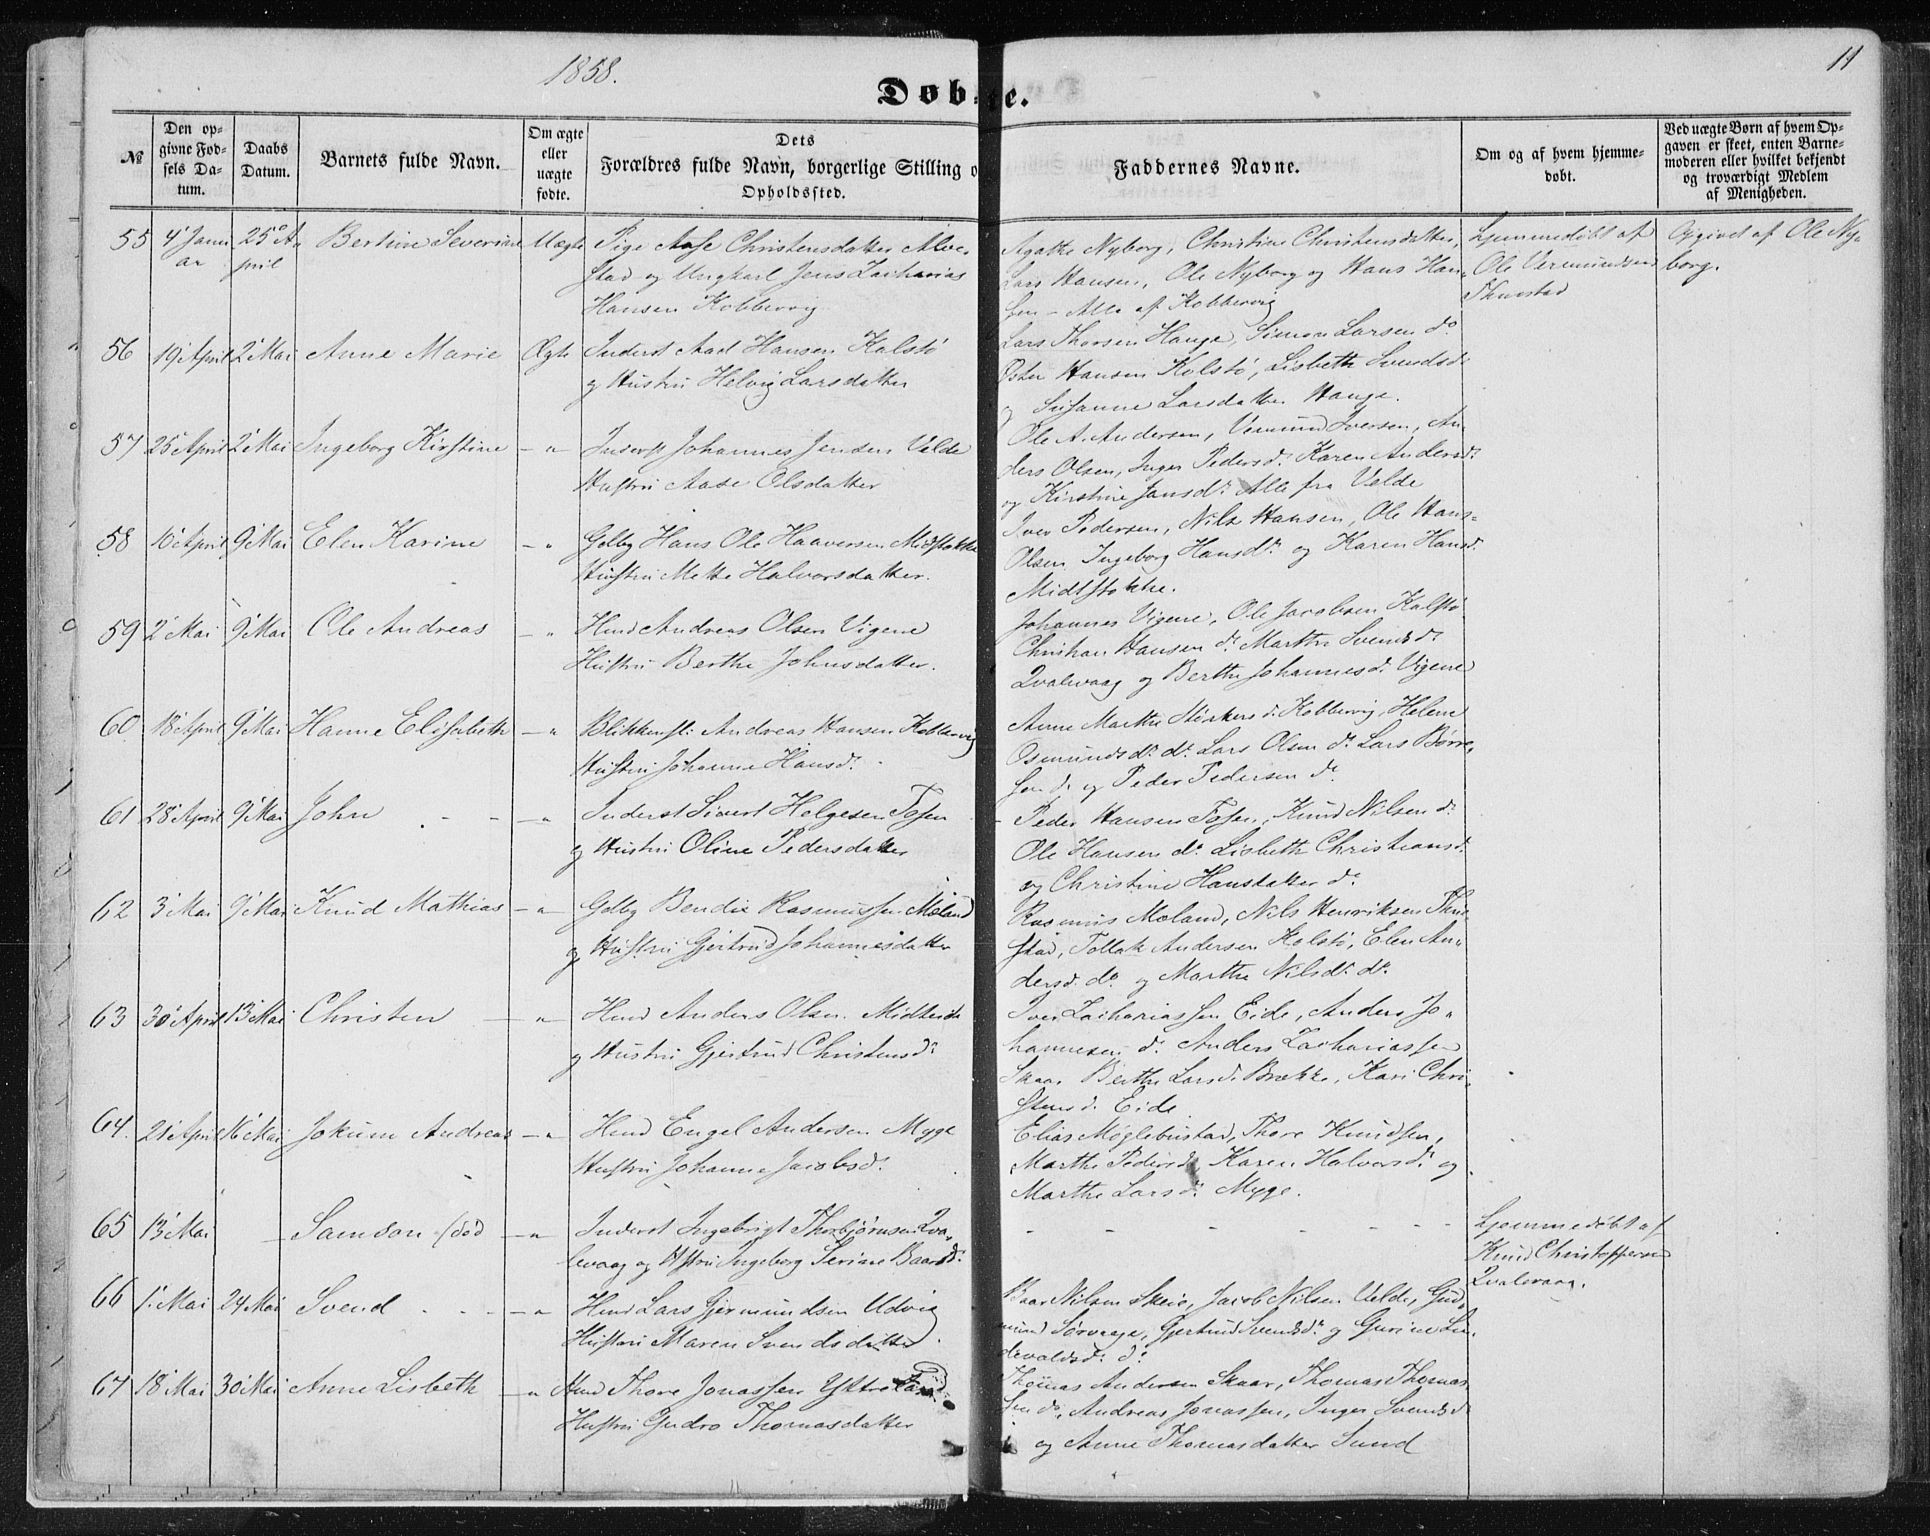 1858.
11
Døbte.
№
Den op-
givne Fød-
sels Da-
tum.
Daabs
Datum.
Barnets fulde Navn.
Om ægte
eller
uægte
fødte.
Dets
Forældres fulde Navn, borgerlige Stilling o
Opholdssted.
Faddernes Navne.
Om og af hvem hjemme-
døbt.
Ved uægte Børn af hvem Op-
gaven er skeet, enten Barne-
moderen eller hvilket bekjendt
og troværdigt Medlem
af Menigheden.
55 4 Janu 25 A Bertine Severine Uægte Pige Aase Christensdatter Alve-
ar pril stad og Ungkarl Jens Zacharias
Hansen Kobbervig
Agathe Nyborg, Christine Christensdatter,
Lars Hansen, Ole Nyborg og Hans Han-
sen - Alle af Kobbervig
Hjemmedøbt af
Ole Vermundsen
Thuestad
Opgivet af Ole Ny-
borg.
56 19 April 2 Mai Anne Marie Ægte Inderst Aad Hansen Kalstø
og Hustru Helvig Larsdatter
Lars Thorsen Hauge, Simon Larsen do
Hansen Kolstø, Lisbeth Svendsd:
og Susanne Larsdatter Hauge.
57 25 April 2 Mai Ingeborg Kirstine - " Inderst Johannes Jensen Velde
Hustru Aase Olsdatter
Ole A. Andersen, Vermund Iversen, An-
ders Olsen, Inger Pedersd: Karen Andersd:
og Kirstine Jansd: Alle fra Velde
58 10 April 9 Mai Elen Karine - " Gelbg Hans Ole Haaversen Midstokke
Hustru Mette Halvorsdatter.
Iver Pedersen, Nils Hansen, Ole Hans-
Olsen Ingeborg Hansd: og Karen Hansd:
Midtstokke.
59 2 Mai 9 Mai Ole Andreas - " Hmd Andreas Olsen Vigene
Hustru Berthe Johnsdatter.
Johannes Vigene, Ole Jacobsen Kalstø
Christian Hansen do Marthe Svendsd:
Qvalevaag og Berthe Johannesd: Vigene
60 18 April 9 Mai Hanne Elisabeth - " Blikkensl: Andreas Hansen Kobbervig
Hustru Johanne Hansd:
Anne Marthe Størkersd: Kobbervig, Helene
Osmundsd: do Lars Olsen do Lars Børre-
sen do og Peder Pedersen do
61 28 April 9 Mai John - - - " Inderst Sivert Helgesen Tosen
og Hustru Oline Pedersdatter
Peder Hansen Tosen, Knud Nilsen do
Ole Hansen do Lisbeth Christiansd:
og Christine Hansdatter do
62 3 Mai 9 Mai Knud Mathias - " Gelbg Bendix Rasmussen Møland
og Hustru Gjertrud Johannesdatter
Rasmus Moland, Nils Henriksen Thue-
stad, Tollak Andersen Kolstø, Elen An-
dersd: do og Marthe Nilsd: do
63 30 April 13 Mai Christen - " Hmd Anders Olsen
og Hustru Gjertrud Christensd:
Iver Zachariassen Eide, Anders Jo-
hannesen do Anders Zachariassen
Skaar Berthe Larsd: Brekke, Kari Chri-
stensd: Eide
64. 21 April 16 Mai Jokum Andreas - " Hmd Engel Andersen Myge
Hustru Johanne Jacobsd:
Elias Møglebustad, Thore Knudsen,
Marthe Pedersd: Karen Halvorsd: og
Marthe Larsd: Myge.
65 13 Mai - Samson (død - " Inderst Ingebrigt Thorbjørnsen Qva-
levaag og Hstru Ingeborg Serine Baardsd:
- - - - - - -
Hjemmedøbt af
Knud Christoffersen
Qvalevaag.
66 1 Mai 24 Mai Svend - - - " Hmd Lars Gjermundsen Udvig
Hustru Maren Svendsdatter
Baar Nilsen Skeie, Jacob Nilsen Velde, Gud-
mund Sørvaage, Gjertrud Svendsd: og Gurine Lu-
devaldsd: do
67 18 Mai 30 Mai Anne Lisbeth - " Hmd Thore Jonassen Yttre
Hustru Gudro Thomasdatter
Thomas Andersen Skaar, Thomas Thomas-
sen do, Andreas Jonassen, Inger Svendsd
og Anne Thomasdatter Sund